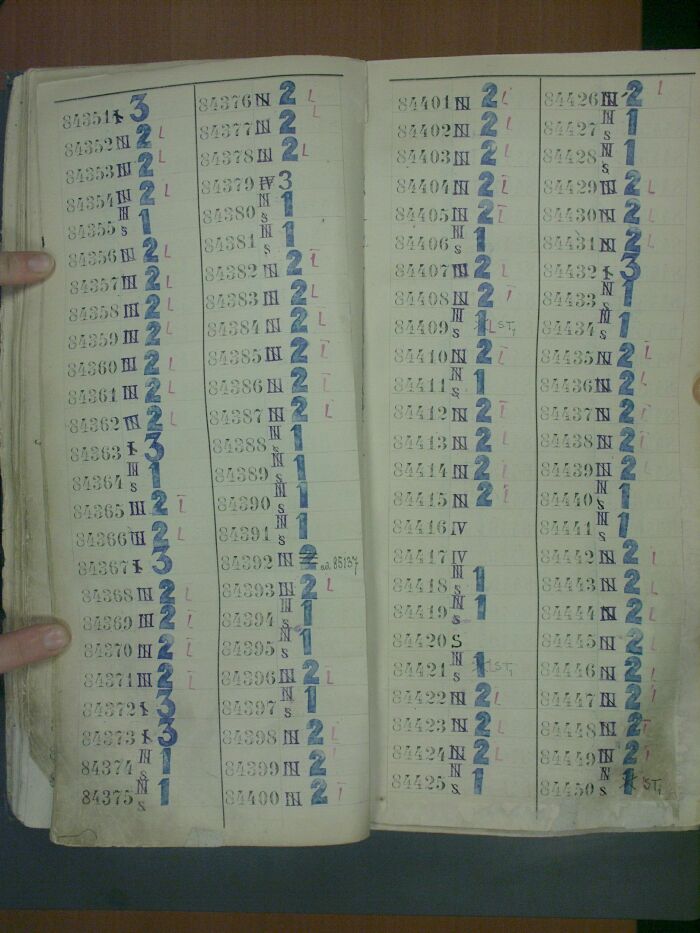 84351 I 3
84352 III 2 L
84353 III 2 L
84354 III 2 L
84355 N s 1
84356 III 2 L
84357 III 2 L
84358 III 2 L
84359 III 2 L
84360 III 2 L
84361 III 2 L
84362 III 2 L
84363 I 3
84364 N s 1
84365 III 2 L
84366 III 2 L
84367 I 3
84368 III 2 L
84369 III 2 L
84370 III 2 L
84371 III 2 L
84372 I 3
84373 I 3
84374 N s 1
84375 N s 1
84376 III 2 L
84377 III 2 L
84378 III 2 L
84379 IV 3
84380 N s 1
84381 N s 1
84382 III 2 L
84383 III 2 L
84384 III 2 L
84385 III 2 L
84386 III 2 L
84387 III 2 L
84388 N s 1
84389 N s 1
84390 N s 1
84391 N s 1
84392 III 2 ad. 85137
84393 III 2 L
84394 N s 1
84395 N s 1
84396 III 2 L
84397 N s 1
84398 III 2 L
84399 III 2 L
84400 III 2 L
84401 III 2 L
84402 III 2 L
84403 III 2 L
84404 III 2 L
84405 III 2 L
84406 N s 1
84407 III 2 L
84408 III 2 L
84409 N s 1 LST1
84410 III 2 L
84411 N s 1
84412 III 2 L
84413 III 2 L
84414 III 2 L
84415 III 2 L
84416 IV
84417 IV
84418 N s 1
84419 N s 1
84420 S
84421 N s 1 LST1
84422 III 2 L
84423 III 2 L
84424 III 2 L
84425 N s 1
84426 III 2 L
84427 N s 1
84428 N s 1
84429 III 2 L
84430 III 2 L
84431 III 2 L
84432 I 3
84433 N s 1
84434 N s 1
84435 III 2 L
84436 III 2 L
84437 III 2 L
84438 III 2 L
84439 III 2 L
84440 N s 1
84441 N s 1
84442 III 2 L
84443 III 2 L
84444 III 2 L
84445 III 2 L
84446 III 2 L
84447 III 2 L
84448 III 2 L
84449 III 2 L
84450 N s 1 ST1